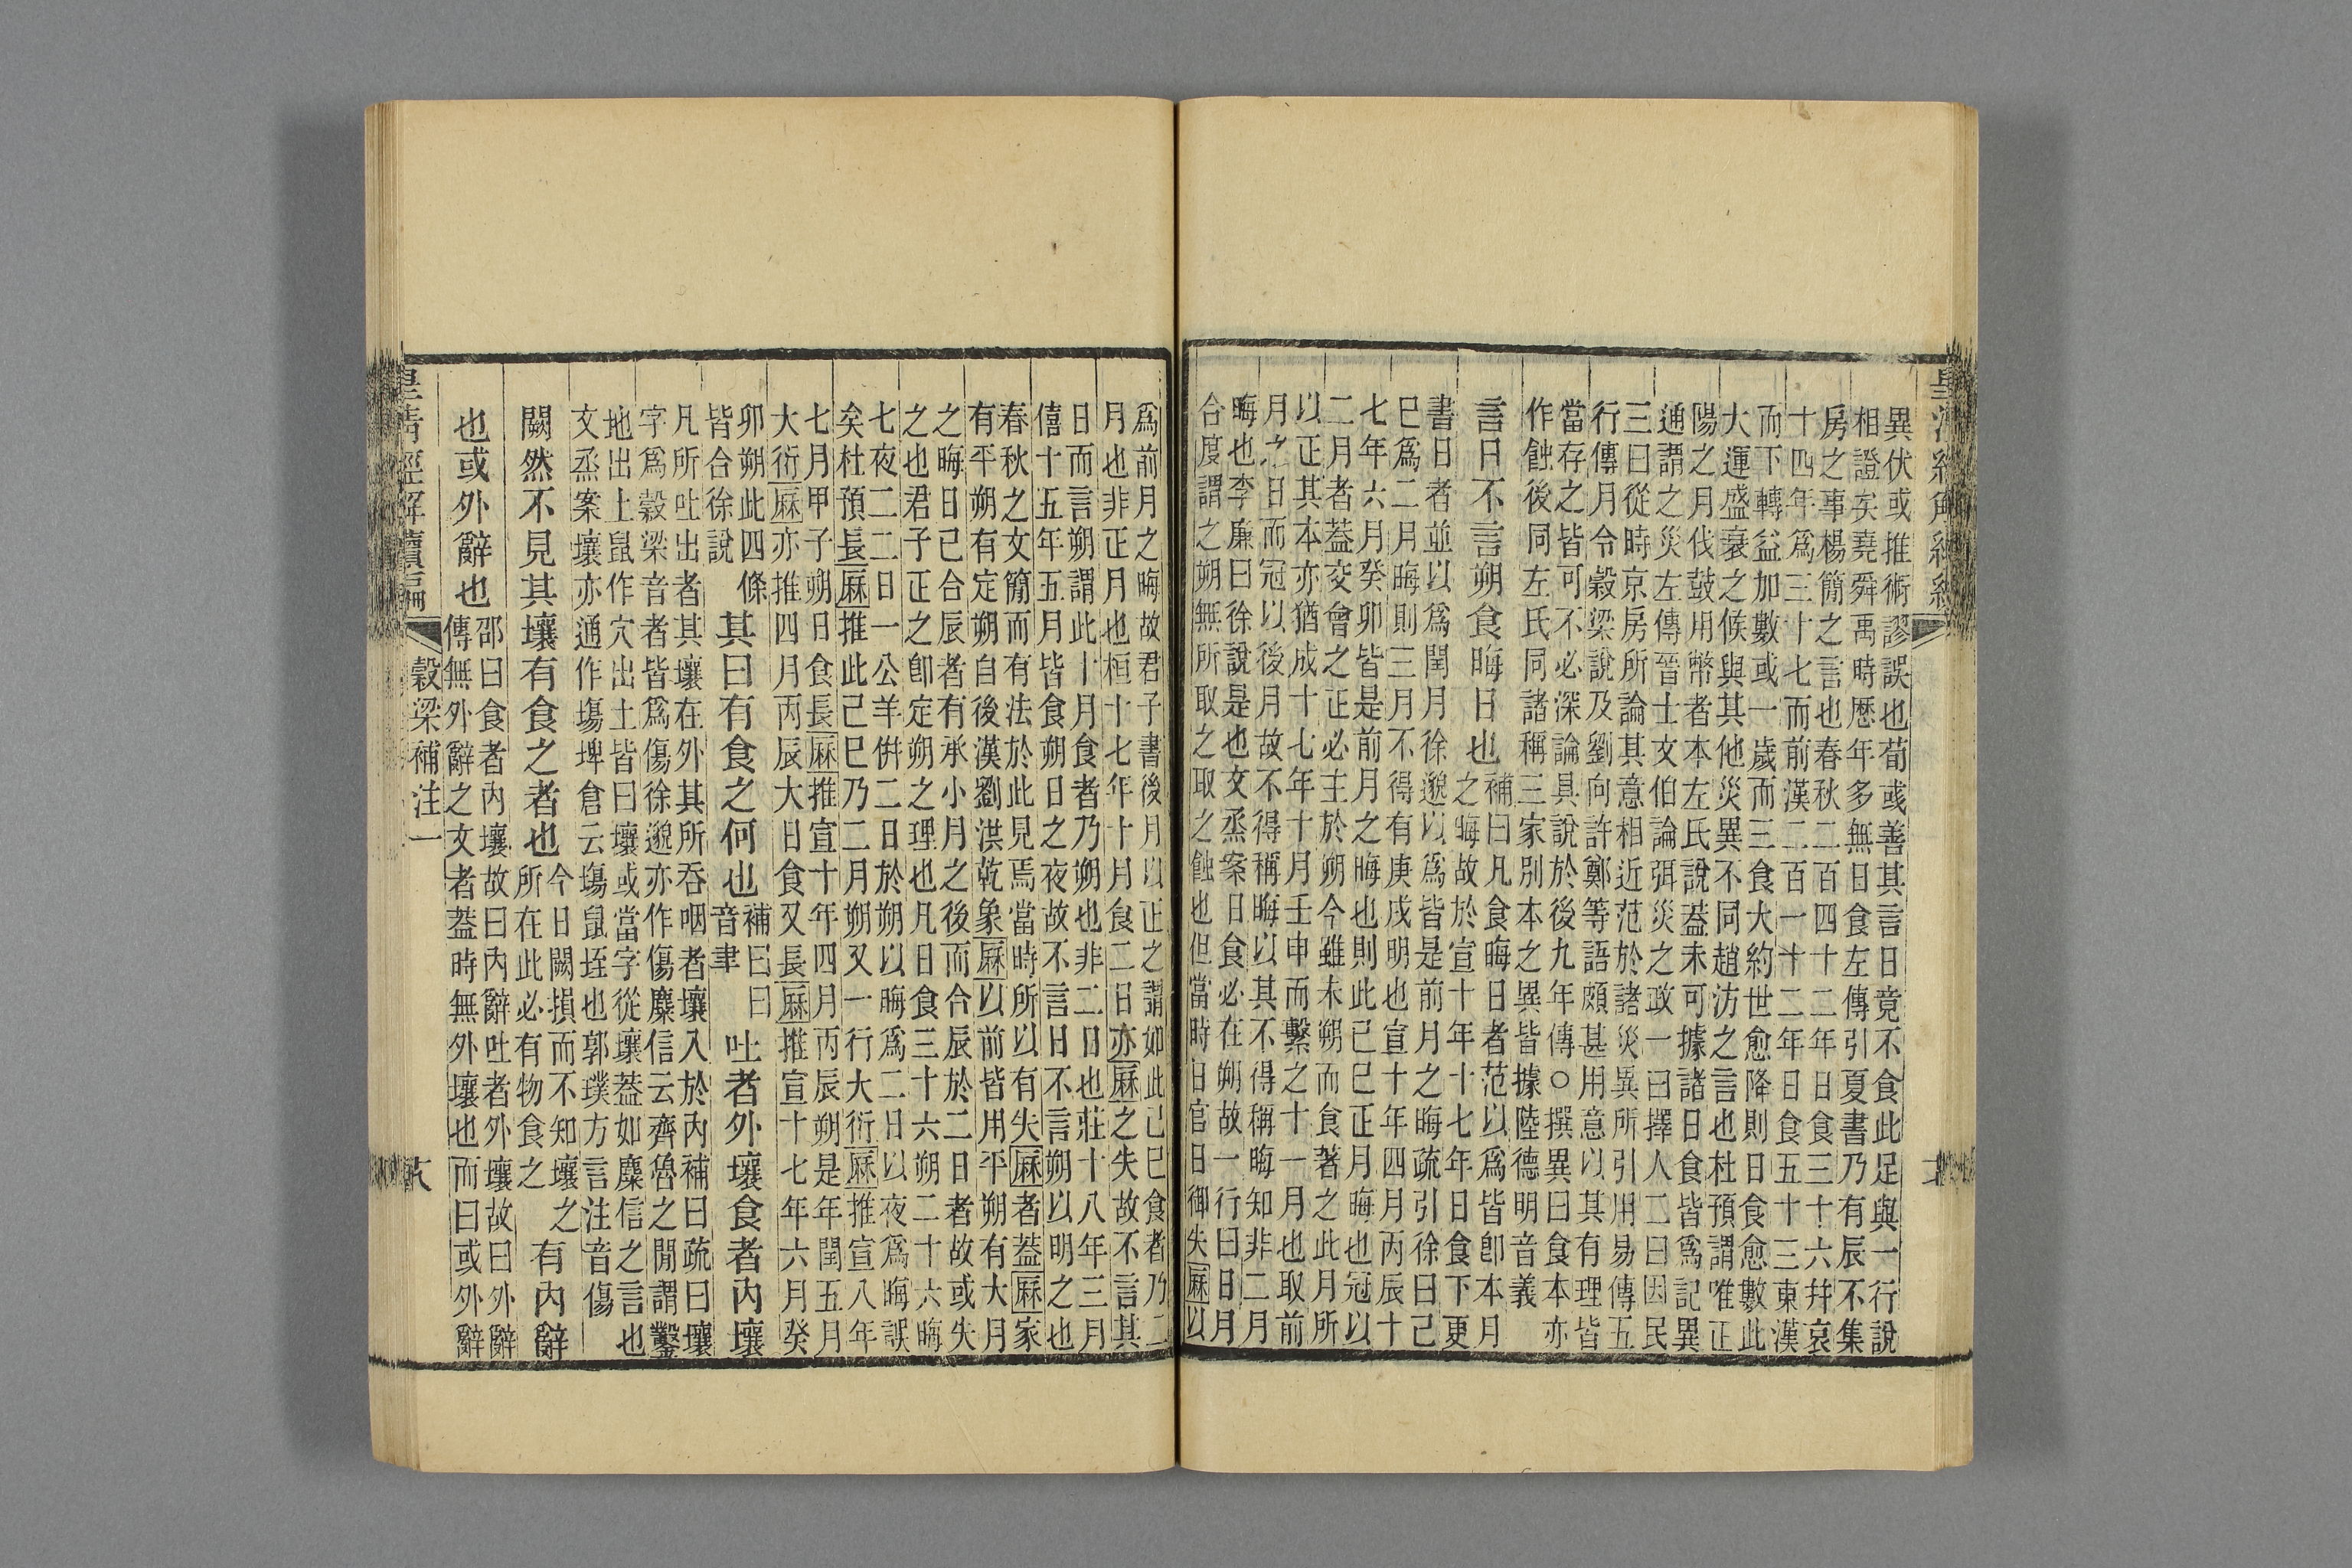 皇清經解續編
異伏或推術謬誤也荀彧善其言日竟不食此足與一行說
相證矣堯舜禹時歷年多無日食左傳引夏書乃有辰不集
房之事楊簡之言也春秋二百四十二年日食三十六幷哀
十四年爲三十七而前漢二百一十二年日食五十三東漢
而下轉益加數或一歲而三食大約世愈降則日食愈數此
大運盛衰之候與其他災異不同趙汸之言也杜預謂唯正
陽之月伐鼓用幣者本左氏說蓋未可據諸日食皆爲記異
通謂之災左傳晉士文伯論弭災之政一曰擇人二曰因民
三曰從時京房所論其意相近范於諸災異所引用易傳五
行傳月令穀梁說及劉向許鄭等語頗甚用意以其有理皆
當存之皆可不必深論具說於後九年傳○撰異曰食本亦
作蝕後同左氏同諸稱三家別本之異皆據陸德明音義
言日不言朔食晦日也
補曰凡食晦日者范以爲皆卽本月
之晦故於宣十年十七年日食下更
書日者並以爲閏月徐邈以爲皆是前月之晦疏引徐曰己
巳爲二月晦則三月不得有庚戌明也宣十年四月丙辰十
七年六月癸卯皆是前月之晦也則此己巳正月晦也冠以
二月者蓋交會之正必主於朔今雖未朔而食著之此月所
以正其本亦猶成十七年十月壬申而繫之十一月也取前
月之日而冠以後月故不得稱晦以其不得稱晦知非二月
晦也李廉曰徐說是也文烝案日食必在朔故一行曰日月
合度謂之朔無所取之取之蝕也但當時日官日御失厤以
爲前月之晦故君子書後月以正之謂如此己巳食者乃二
月也非正月也桓十七年十月食二日亦厤之失故不言其
日而言朔謂此十月食者乃朔也非二日也莊十八年三月
僖十五年五月皆食朔日之夜故不言日不言朔以明之也
春秋之文簡而有法於此見焉當時所以有失厤者蓋厤家
有平朔有定朔自後漢劉洪乾象厤以前皆用平朔有大月
之晦日已合辰者有承小月之後而合辰於二日者故或失
之也君子正之卽定朔之理也凡日食三十六朔二十六晦
七夜二二日一公羊倂二日於朔以晦爲二日以夜爲晦誤
矣杜預長厤推此己巳乃二月朔又一行大衍厤推宣八年
七月甲子朔日食長厤推宣十年四月丙辰朔是年閏五月
大衍厤亦推四月丙辰大日食又長厤推宣十七年六月癸
卯朔此四條
皆合徐說
其曰有食之何也
補曰曰
音聿
吐者外壤食者內壤
凡所吐出者其壤在外其所吞咽者壤入於內補曰疏曰壤
字爲穀梁音者皆爲傷徐邈亦作傷麋信云齊魯之閒謂鑿
地出土鼠作穴出土皆曰壤或當字從壤蓋如麋信之言也
文烝案壤亦通作塲埤倉云塲鼠垤也郭璞方言注音傷
闕然不見其壤有食之者也
今日闕損而不知壤之
所在此必有物食之
有內辭
也或外辭也
邵曰食者內壤故曰內辭吐者外壤故曰外辭
傳無外辭之文者蓋時無外壤也而曰或外辭
皇清經解續編
穀梁補注一